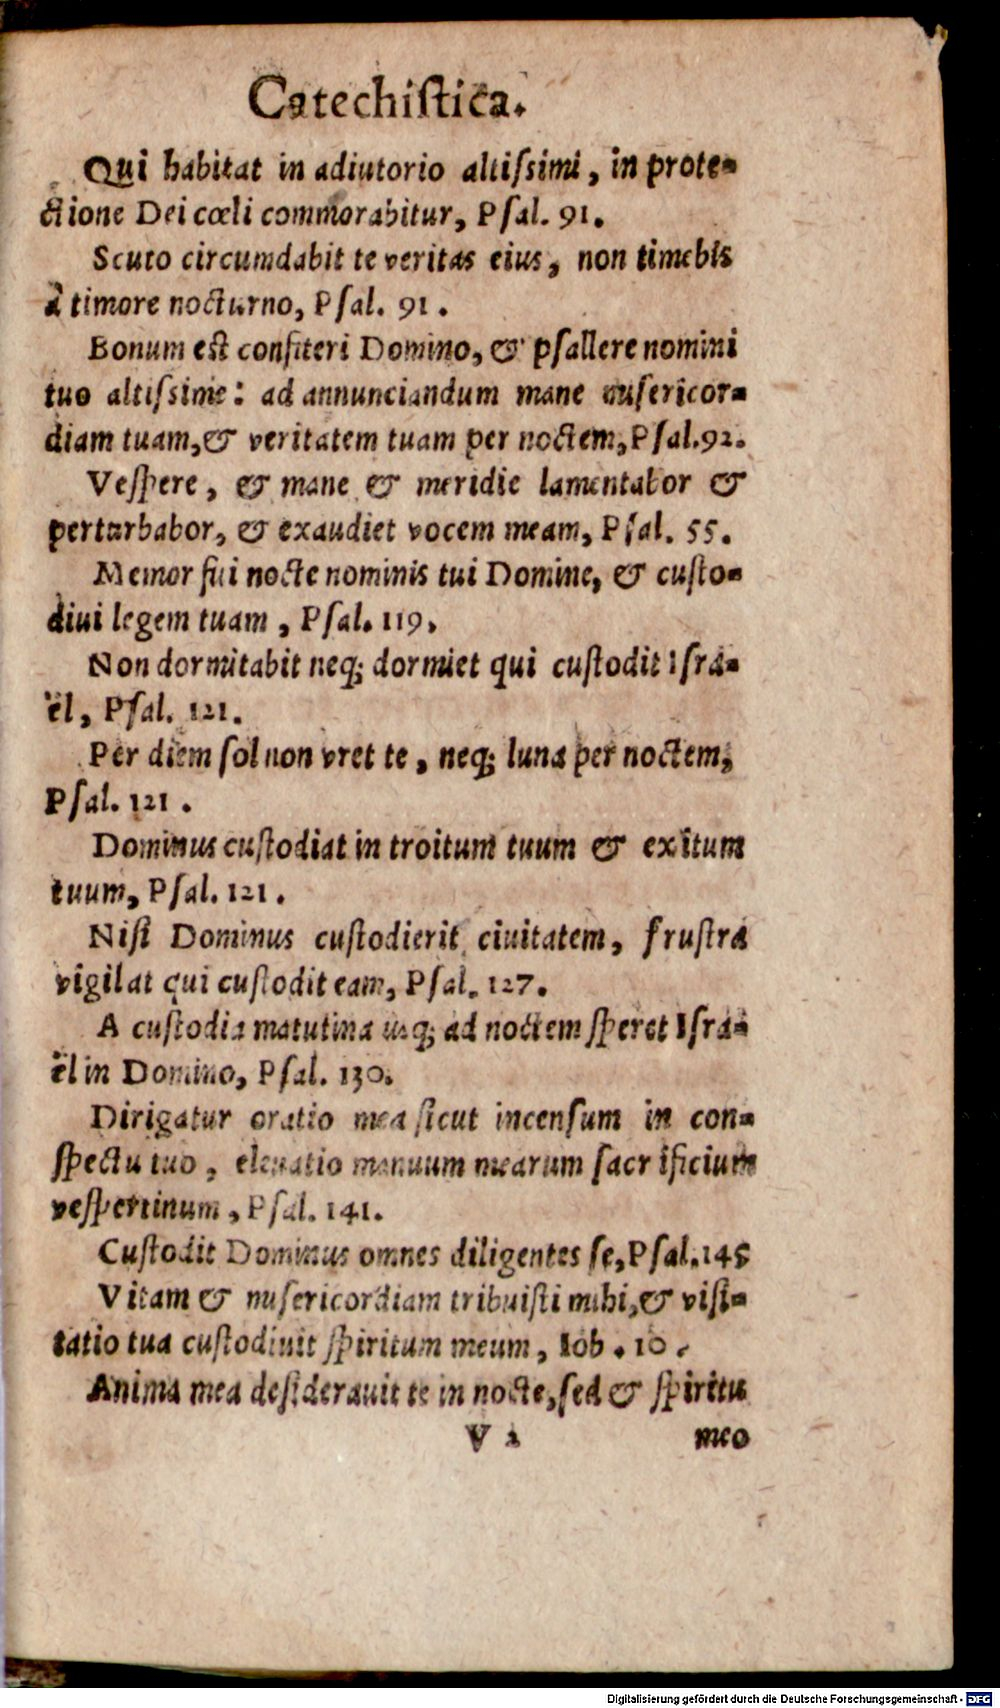 Catechiſtica.
Qui habitat in adiutorio altiſsimi, in prote-
ctione Dei cœli commorabitur, Pſal. 91.
Scuto circumdabit te veritas eius, non timebis
à timore nocturno, Pſal. 91.
Bonum est confiteri Domino, & pſallere nomini
tuo altiſsime: ad annunciandum mane miſericor-
diam tuam, & veritatem tuam per noctem, Pſal. 92.
Veſpere, & mane & meridie lamentabor &
perturbabor, & exaudiet vocem meam, Pſal. 55.
Memor fui nocte nominis tui Domine, & cuſto-
diui legem tuam, Pſal. 119.
Non dormitabit neq; dormiet qui cuſtodit Iſra-
ël, Pſal. 121.
Per diem ſol non vret te, neq; luna per noctem,
Pſal. 121.
Dominus cuſtodiat in troitum tuum & exitum
tuum, Pſal. 121.
Niſi Dominus cuſtodierit ciuitatem, fruſtra
vigilat qui cuſtodit eam, Pſal. 127.
A cuſtodia matutina uſq; ad noctem ſperet Iſra-
ël in Domino, Pſal. 130.
Dirigatur oratio mea ſicut incenſum in con-
ſpectu tuo, eleuatio manuum mearum ſacrificium
veſpertinum, Pſal. 141.
Cuſtodit Dominus omnes diligentes ſe, Pſal. 145
Vitam & miſericordiam tribuiſti mihi, & viſi-
tatio tua cuſtodiuit ſpiritum meum, Iob. 10.
Anima mea deſiderauit te in nocte, ſed & ſpiritu
V
meo
Digitalisierung gefördert durch die Deutsche Forschungsgemeinschaft - DFG